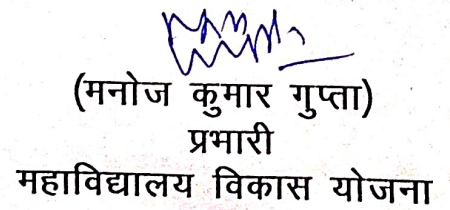 (मनोज कुमार गुप्ता)
प्रभारी
महाविद्यालय विकास योजना